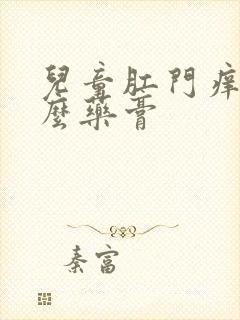 兒童肛門痒
麼藥膏
秦富